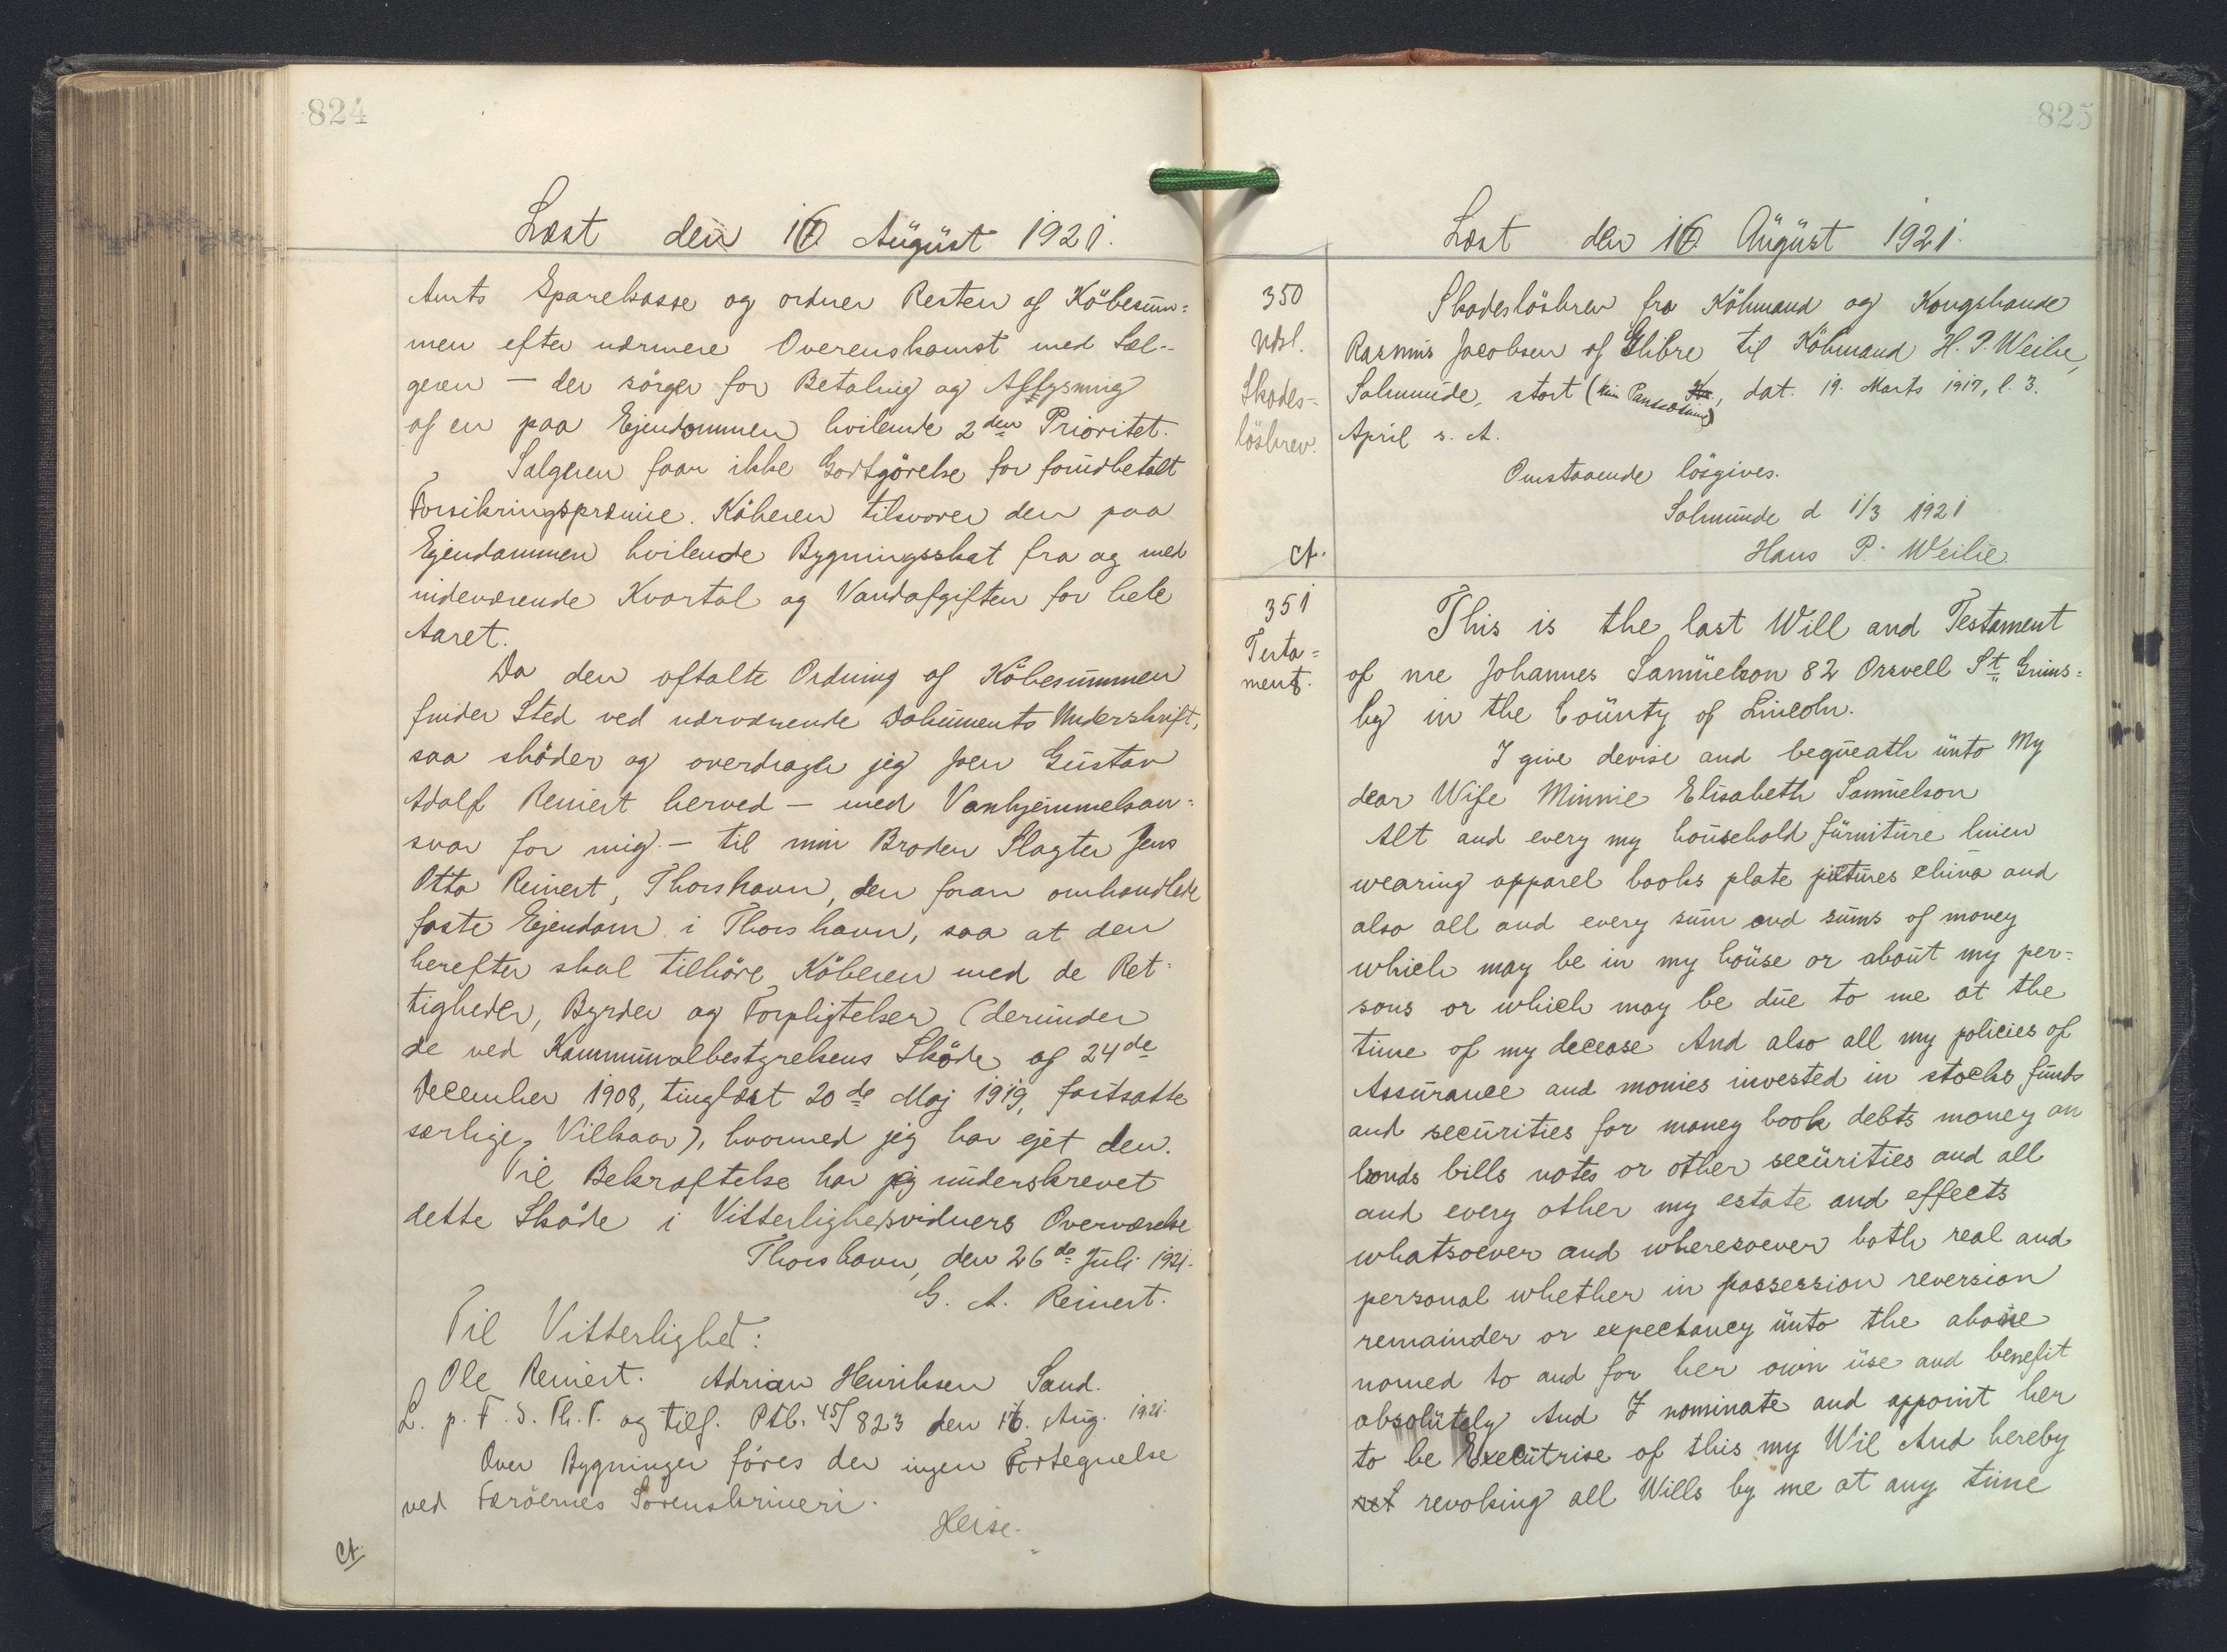 824
Læst den 16 August 1921.
Amts Sparekasse og ordner Resten af Köbesum=
men efter nærmere Overenskomst med Sæl=
geren — der sörger for Betaling og Aflysning
af en paa Ejendommen hvilende 2den Prioritet.
Sælgeren faar ikke Godtgörelse for forudbetalt
Forsikringspræmie. Köberen tilsvarer den paa
Ejendommen hvilende Bygningsskat fra og med
indeværende Kvartal og Vandafgiften for hele
Aaret.
Da den aftalte Ordning af Köbesummen
finder Sted ved nærværende Dokuments Underskrift,
saa sköder og overdrager jeg Joen Gustav
Adolf Reinert herved — med Vanhjemmelsan=
svar for mig. — til min Broder Slagter Jens
Otto Reinert, Thorshavn, den foran omhandlede
faste Ejendom i Thorshavn, saa at den
herefter skal tilhöre Köberen med de Ret=
tigheder, Byrder og Forpligtelser (derunder
de ved Kommunalbestyrelsens Sköde af 24de
December 1908, tinglæst 20de Maj 1919, fastsatte
særlige Vilkaar), hvormed jeg har ejet den.
Til Bekræftelse har jeg underskrevet
dette Sköde i Vitterlighedsvidners Overværelse
Thorshavn, den 26de Juli 1921.
G. A. Reinert.
Til Vitterlighed:
Ole Reinert. Adrian Henriksen Sand.
L. p. F. S. Th. T. og tilf. Ptb. 45/823 den 16. Aug. 1921.
Over Bygninger föres der ingen Fortegnelse
ved Færöernes Sorenskriveri.
Heise.
Ct.
825
Læst den 16 August 1921.
350
Udsl.
Skades=
lösbrev.
Ct.
Skadeslösbrev fra Köbmand og Kongsbonde
Rasmus Jacobsen af Glibre til Köbmand H. P. Weihe,
Solmunde, stort (kun Pantsætning) Kr., dat. 19. Marts 1917, l. 3.
April s. A.
Omstaaende lösgives.
Solmunde d 1/3 1921
Hans P. Weihe.
351
Testa=
ment.
This is the last Will and Testament
of me Johannes Samuelson 82 Orwell St. Grims=
by in the County of Lincoln.
I give devise and bequeath unto My
dear Wife Minnie Elisabeth Samuelson
Alt and every my household furniture linen
wearing apparel books plate pictures china and
also all and every sum and sums of money
which may be in my house or about my per=
sons or which may be due to me at the
time of my decease And also all my policies of
Assurance and monies invested in stocks funds
and securities for money book debts money on
bonds bills notes or other securities and all
and every other my estate and effects
whatsoever and wheresoever both real and
personal whether in possession reversion
remainder or expectancy unto the above
named to and for her own use and benefit
absolutely And I nominate and appoint her
to be Executrise of this my Wil And hereby
ret revoking all Wills by me at any time